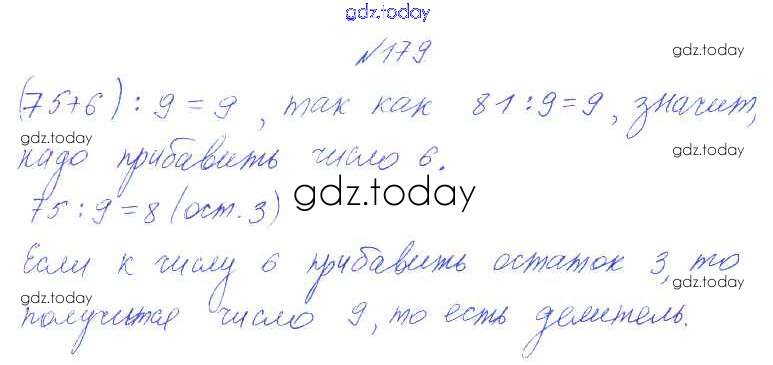 gdz.today
№179
gdz.today
(75+6) : 9 = 9, так как 81 : 9 = 9, значит,
gdz.today
надо прибавить число 6.
gdz.today
gdz.today
75 : 9 = 8 (ост. 3)
Если к числу 6 прибавить остаток 3, то
gdz.today
gdz.today
получится число 9, то есть делитель.